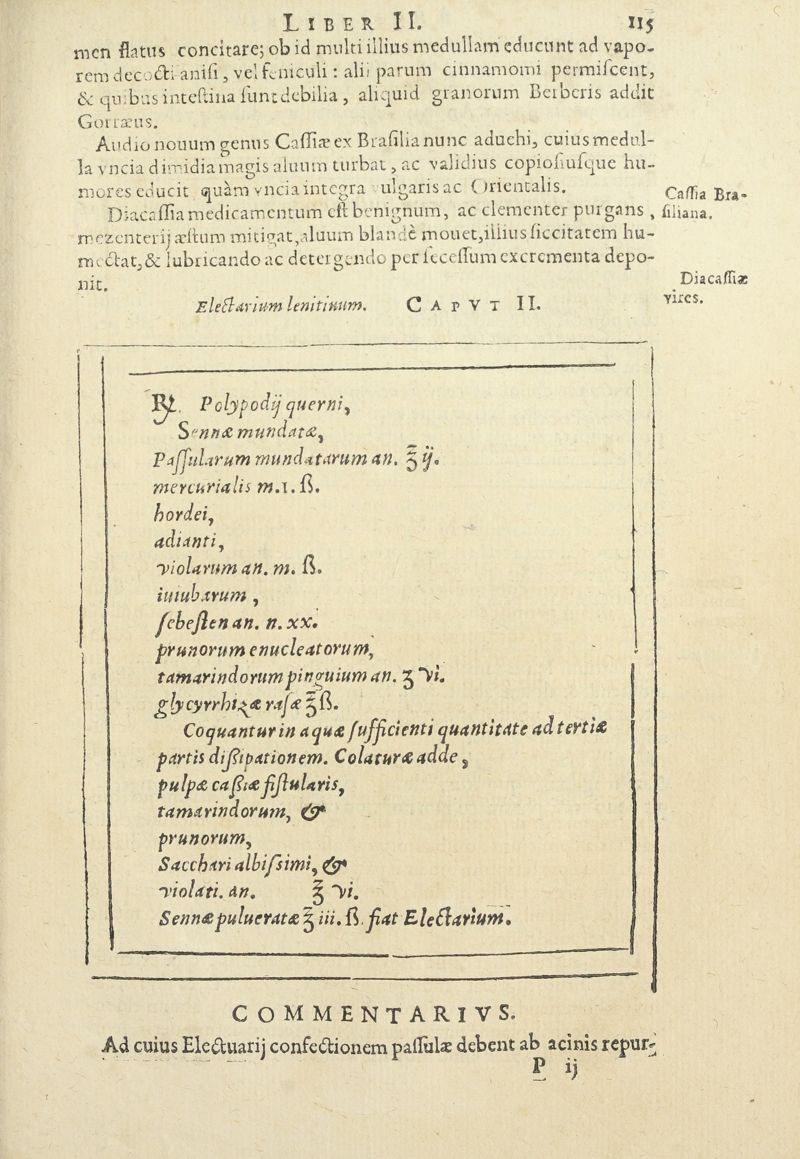 LIBER II. 115
men flatus concitare; ob id multi illius medullam educunt ad vapo-
rem decocti anisi, vel feniculi: alii parum cinnamomi permiſcent,
& quibus inteſtina ſunt debilia, aliquid granorum Berberis addit
Gorræus.
Audio nouum genus Caſſiæ ex Braſilia nunc aduehi, cuius medul-
la vncia dimidia magis aluum turbat, ac validius copioſiuſque hu-
mores educit quàm vncia integra vulgaris ac Orientalis.
Caſſia Bra-
ſiliana.
Diacaſſia medicamentum eſt benignum, ac clementer purgans,
mezenterij æſtum mitigat, aluum blandè mouet, illius ſiccitatem hu-
mectat, & lubricando ac detergendo per ſeceſſum excrementa depo-
nit.
Diacaſſiæ
vires.
Electarium lenitiuum. CAPVT II.
℞. Polypodij querni,
Sennæ mundatæ,
Paſſularum mundatarum an. ℥ ij.
mercurialis m.1.ß.
hordei,
adianti,
violarum an. m. ß.
iuiubarum,
ſebeſten an. n. xx.
prunorum enucleatorum,
tamarindorum pinguium an. ʒ vi.
glycyrrhizæ raſæ ℥ß.
Coquantur in aquæ ſufficienti quantitate ad tertiæ
partis diſsipationem. Colaturæ adde,
pulpæ caſsiæ fiſtularis,
tamarindorum, &
prunorum,
Sacchari albiſsimi, &
violati. an. ℥ vi.
Sennæ pulueratæ ℥ iii. ß. fiat Electarium.
COMMENTARIVS.
Ad cuius Electuarij confectionem paſſulæ debent ab acinis repur-
P ij